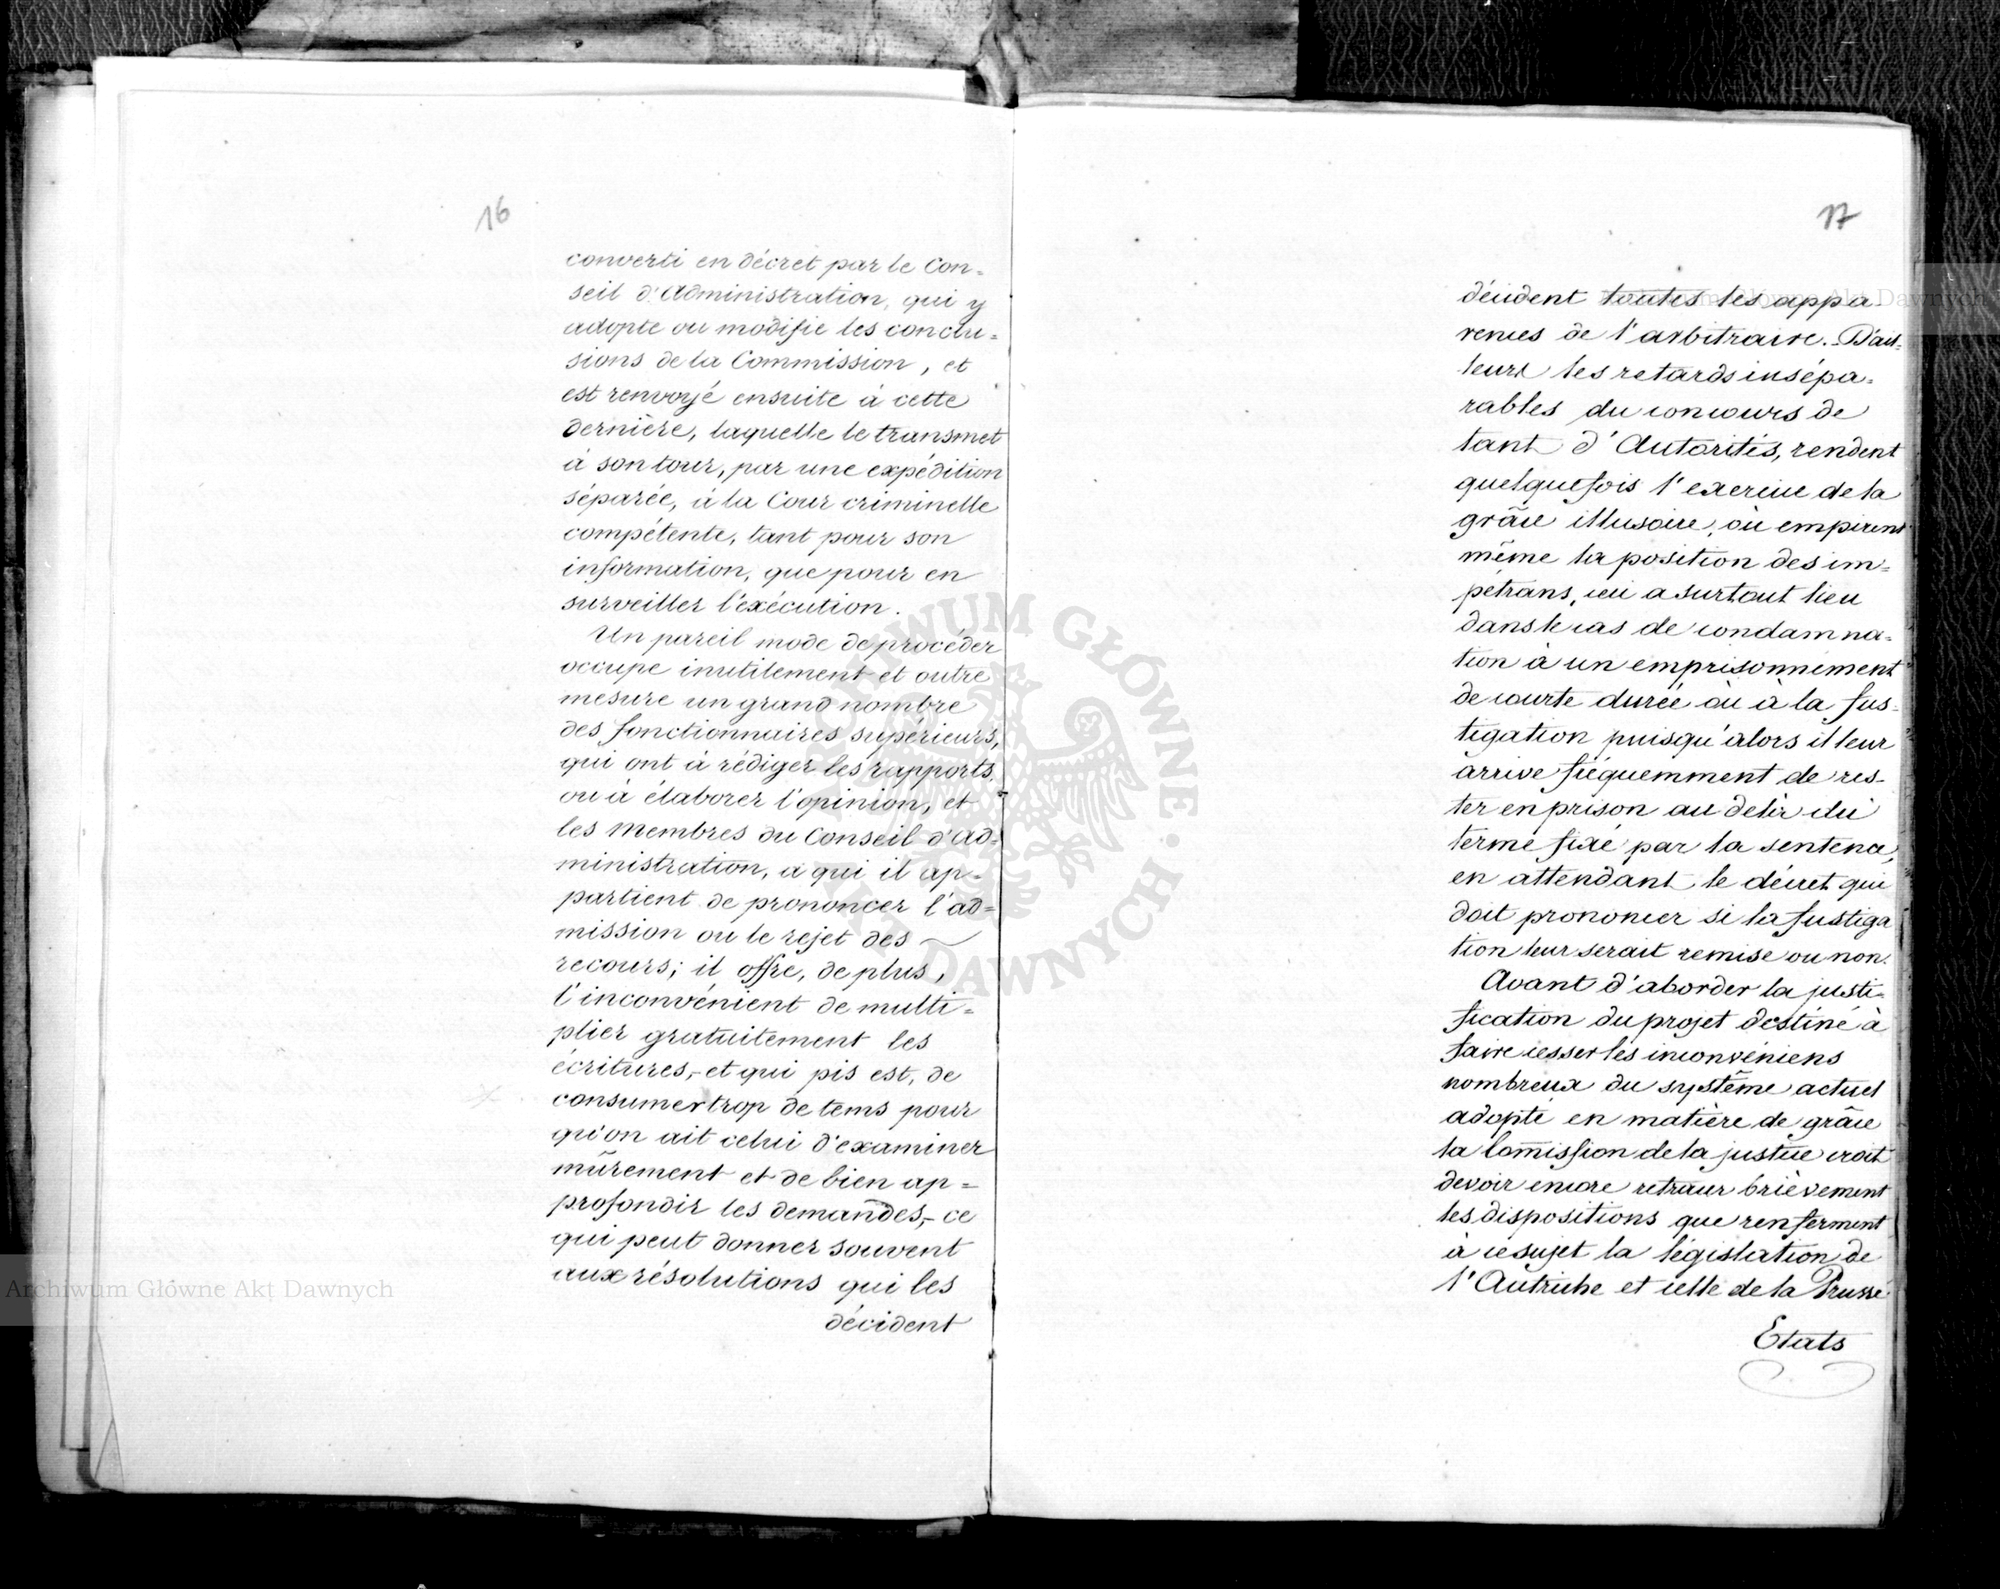 16
converti en décret par le Con=
seil d'Administration, qui y
adopte ou modifie les conclu=
sions de la Commission, et
est renvoyé ensuite à cette
dernière, laquelle le transmet
à son tour, par une expédition
séparée, à la Cour criminelle
compétente, tant pour son
information, que pour en
surveiller l'exécution.
Un pareil mode de procéder
occupe inutilement et outre
mesure un grand nombre
des fonctionnaires supérieurs,
qui ont à rédiger les rapports,
ou à élaborer l'opinion, et
les Membres du Conseil d'Ad=
ministration, à qui il ap=
partient de prononcer l'ad=
mission ou le rejet des
recours; il offre, de plus,
l'inconvénient de multi=
plier gratuitement les
écritures,- et qui pis est, de
consumer trop de tems pour
qu'on ait celui d'examiner
mûrement et de bien ap=
profondir les demandes,- ce
qui peut donner souvent
aux résolutions qui les
décident
17
décident toutes les appa
rences de l'arbitraire.- D'ail=
leurs les retards insépa=
rables du concours de
tant d'Autorités, rendent
quelquefois l'exercice de la
grâce illusoire, où empirent
même la position des im=
pétrans, ceci a surtout lieu
dans le cas de condamna=
tion à un emprisonnement
de courte durée où à la fus=
tigation puisqu'alors il leur
arrive fréquemment de res=
ter en prison au delà du
terme fixé par la sentence,
en attendant le décret qui
doit prononcer si la fustiga
tion leur serait remise ou non.
Avant d'aborder la justi=
fication du projet destiné à
faire cesser les inconvéniens
nombreux du système actuel
adopté en matière de grâce
la Comission de la justice croit
devoir encore retracer brièvement
les dispositions que renferment
à ce sujet la législation de
l'Autriche et celle de la Prusse
Etats
Archiwum Główne Akt Dawnych
Archiwum Główne Akt Dawnych
ARCHIWUM GŁÓWNE · AKT DAWNYCH ·